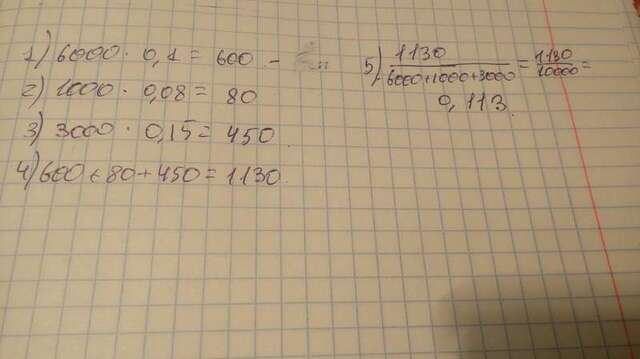 1) 6000 · 0,1 = 600 -
2) 1000 · 0,08 = 80
3) 3000 · 0,15 = 450
4) 600 + 80 + 450 = 1130.
5) 1130 / 6000+1000+3000 = 1130 / 10000 =
0,113.